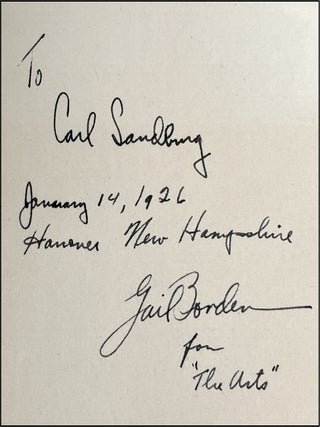 To
Carl Sandburg
January 14, 1926
Hanover New Hampshire
Gail Borden
for
"The Arts"